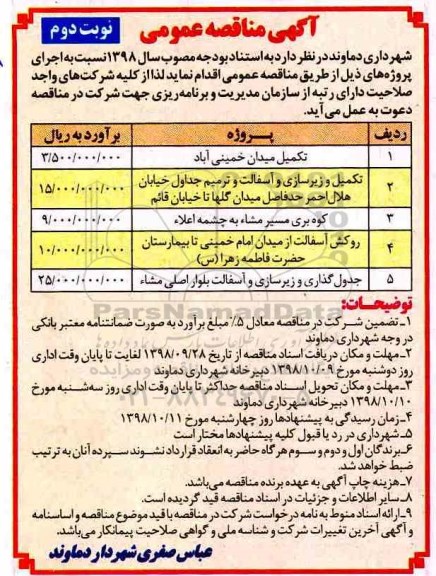 آگهی مناقصه عمومی
نوبت دوم
شهرداری دماوند در نظر دارد به استناد بودجه مصوب سال ۱۳۹۸ نسبت به اجرای
پروژه‌های ذیل از طریق مناقصه عمومی اقدام نماید لذا از کلیه شرکت‌های واجد
صلاحیت دارای رتبه از سازمان مدیریت و برنامه‌ریزی جهت شرکت در مناقصه
دعوت به عمل می‌آید.
ردیف پـــروژه برآورد به ریال
۱ تکمیل میدان خمینی آباد ۳/۵۰۰/۰۰۰/۰۰۰
۲ تکمیل و زیرسازی و آسفالت و ترمیم جداول خیابان هلال احمر حدفاصل میدان گلها تا خیابان قائم ۱۵/۰۰۰/۰۰۰/۰۰۰
۳ کوه بری مسیر مشاء به چشمه اعلاء ۹/۰۰۰/۰۰۰/۰۰۰
۴ روکش آسفالت از میدان امام خمینی تا بیمارستان حضرت فاطمه زهرا (س) ۱۰/۰۰۰/۰۰۰/۰۰۰
۵ جدول گذاری و زیرسازی و آسفالت بلوار اصلی مشاء ۲۵/۰۰۰/۰۰۰/۰۰۰
توضیحات:
۱ـ تضمین شرکت در مناقصه معادل ۵٪ مبلغ برآورد به صورت ضمانتنامه معتبر بانکی
در وجه شهرداری دماوند
۲ـ مهلت و مکان دریافت اسناد مناقصه از تاریخ ۱۳۹۸/۰۹/۲۸ لغایت تا پایان وقت اداری
روز دوشنبه مورخ ۱۳۹۸/۱۰/۰۹ دبیرخانه شهرداری دماوند
۳ـ مهلت و مکان تحویل اسناد مناقصه حداکثر تا پایان وقت اداری روز سه‌شنبه مورخ
۱۳۹۸/۱۰/۱۰ دبیرخانه شهرداری دماوند
۴ـ زمان رسیدگی به پیشنهادها روز چهارشنبه مورخ ۱۳۹۸/۱۰/۱۱
۵ـ شهرداری در رد یا قبول کلیه پیشنهادها مختار است
۶ـ برندگان اول و دوم و سوم هر گاه حاضر به انعقاد قرارداد نشوند سپرده آنان به ترتیب
ضبط خواهد شد.
۷ـ هزینه چاپ آگهی به عهده برنده مناقصه می‌باشد.
۸ـ سایر اطلاعات و جزئیات در اسناد مناقصه قید گردیده است.
۹ـ ارائه اسناد منوط به نامه درخواست شرکت در مناقصه با قید موضوع مناقصه و اساسنامه
و آگهی آخرین تغییرات شرکت و شناسه ملی و گواهی صلاحیت پیمانکار می‌باشد.
عباس صفری شهردار دماوند